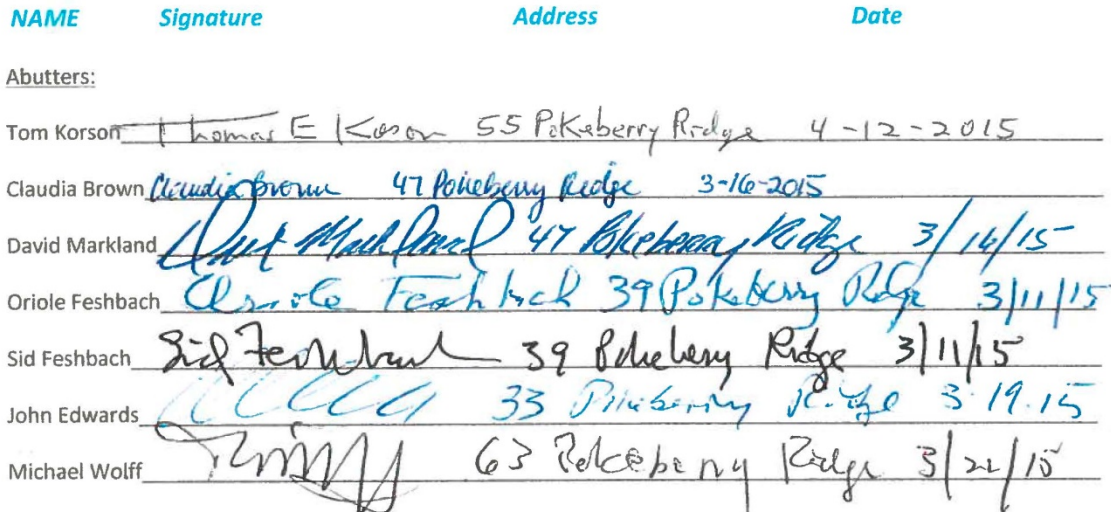 NAME Signature Address Date
Abutters:
Tom Korson Thomas E Korson 55 Pokeberry Ridge 4-12-2015
Claudia Brown Claudia Brown 47 Pokeberry Ridge 3-16-2015
David Markland David Markland 47 Pokeberry Ridge 3/16/15
Oriole Feshbach Oriole Feshbach 39 Pokeberry Ridge 3/11/15
Sid Feshbach Sid Feshbach 39 Pokeberry Ridge 3/11/15
John Edwards 33 Pokeberry Ridge 3.19.15
Michael Wolff 63 Pokeberry Ridge 3/22/15